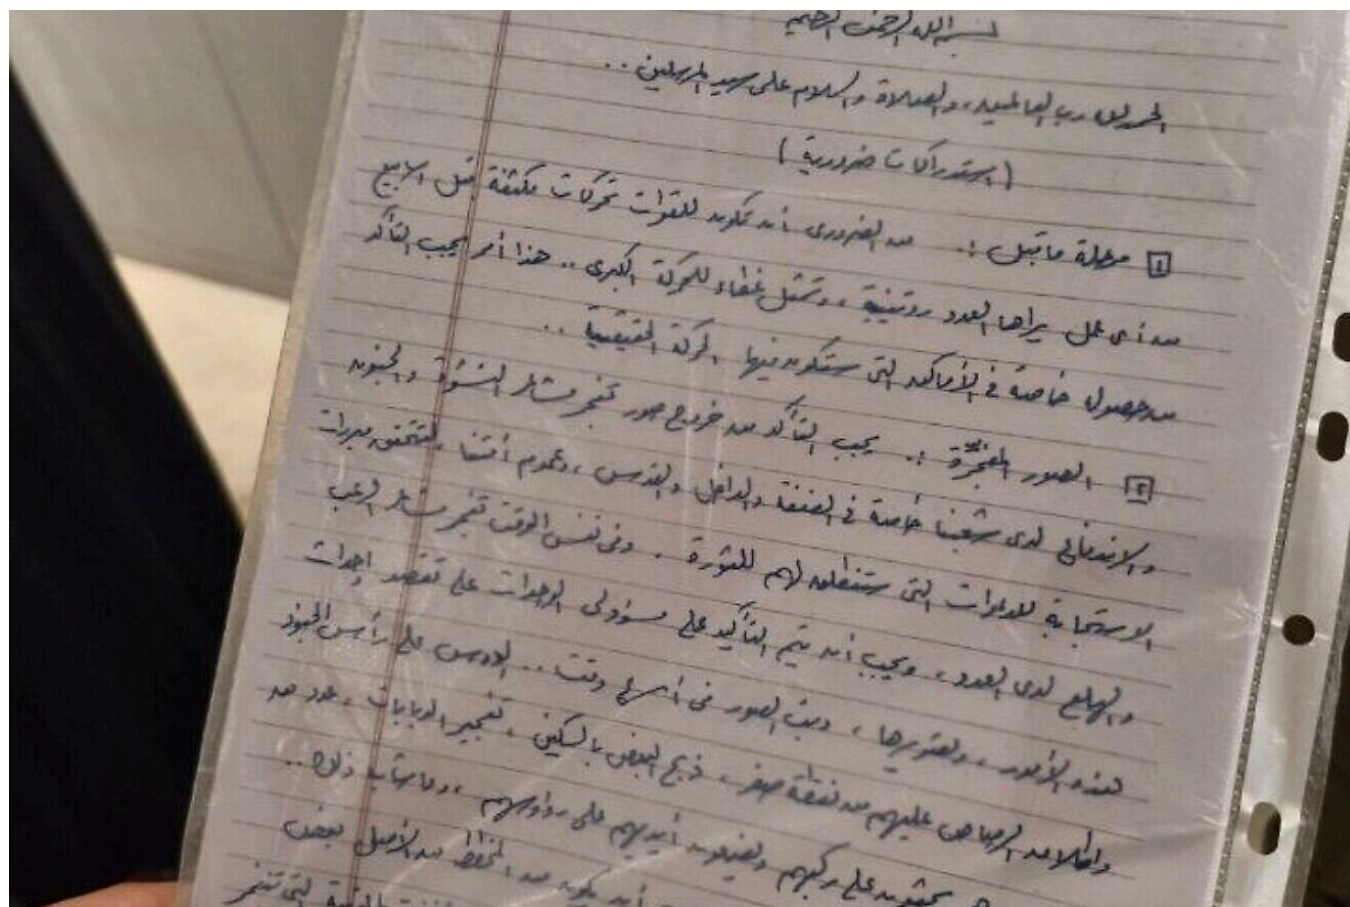 بسم الله الرحمن الرحيم
الحمد لله رب العالمين، والصلاة والسلام على سيد المرسلين..
(استدراكات ضرورية)
1 مرحلة ما قبل :. من الضروري أن تكون للقوات تحركات مكثفة قبل أسابيع
من أي عمل يراها العدو روتينية، وتشكل غطاء للحركة الكبرى.. هذا أمر يجب التأكد
من حصوله خاصة في الأماكن التي ستكون فيها الحركة الحقيقية..
2 الصور المفجرة :. يجب التأكد من خروج صور تفجر مشاعر النشوة والجنون
والاندفاع لدى شعبنا خاصة في الضفة والداخل والقدس، وعموم أمتنا، لتتحقق مبررات
الاستجابة للدعوات التي ستنطلق لهم للثورة. وفي نفس الوقت تفجر مشاعر الرعب
والهلع لدى العدو، ويجب أن يتم التأكيد على مسؤولي الوحدات على تقصد إحداث
هذه الأمور، وتصويرها، وبث الصور في أسرع وقت.. الدوس على رأس الجنود
وإطلاق الرصاص عليهم من نقطة صفر، ذبح البعض بالسكين، تفجير الدبابات، عدد من
يجثون على ركبهم ويضعون أيديهم على رؤوسهم، وما شابه ذلك..
أن يكون من المخطط من الأصل بعض
التي تفجر